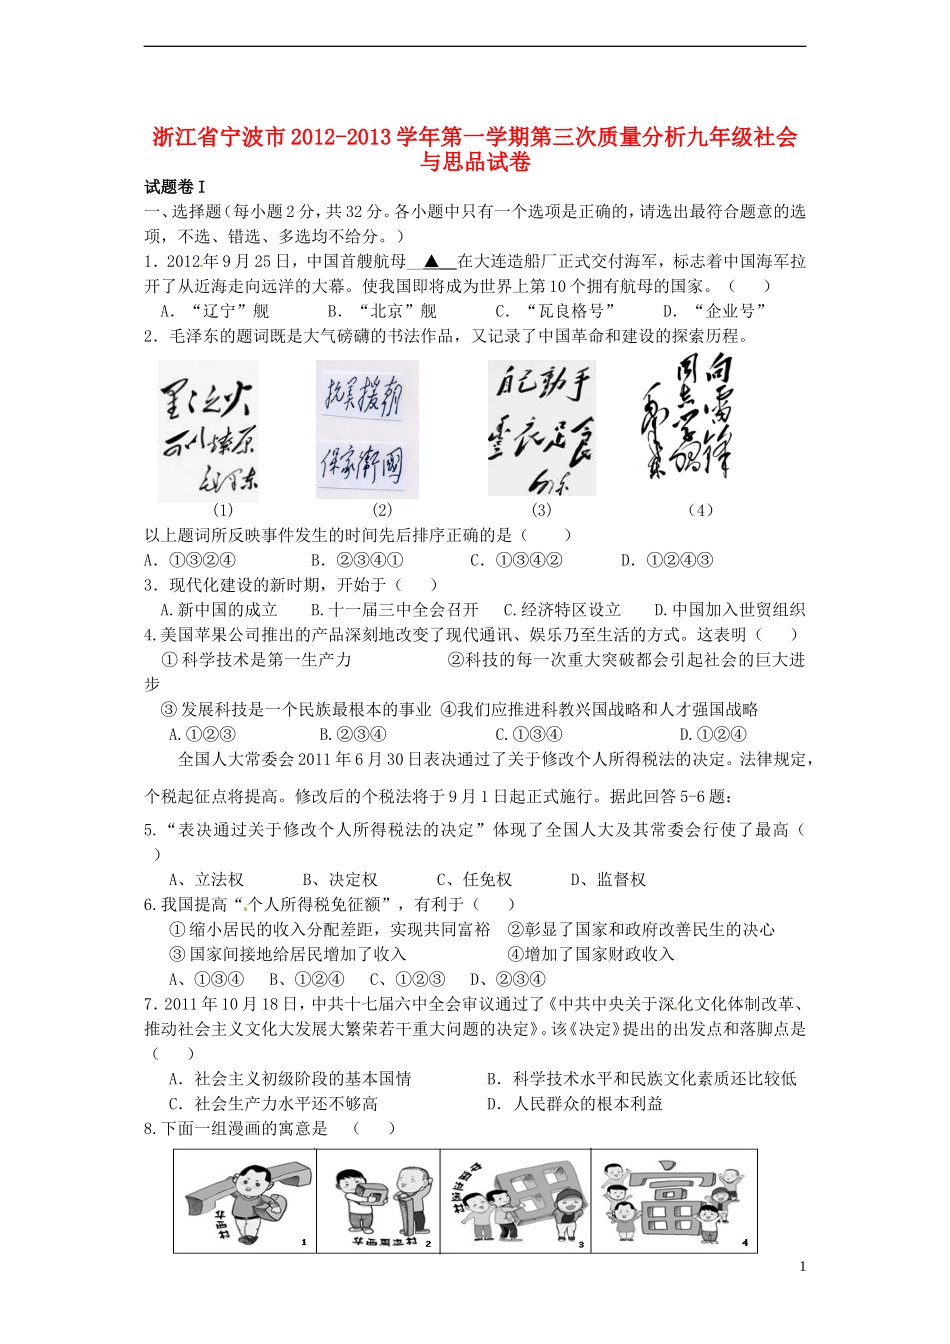 浙江省宁波市 2012-2013 学年第一学期第三次质量分析九年级社会
与思品试卷
试题卷 I
一、选择题（每小题 2 分，共 32 分。各小题中只有一个选项是正确的，请选出最符合题意的选
项，不选、错选、多选均不给分。）
1．2012年 9 月 25 日，中国首艘航母__▲__在大连造船厂正式交付海军，标志着中国海军拉
开了从近海走向远洋的大幕。使我国即将成为世界上第 10 个拥有航母的国家。（ ）
A．“辽宁”舰 B．“北京”舰 C．“瓦良格号” D．“企业号”
2．毛泽东的题词既是大气磅礴的书法作品，又记录了中国革命和建设的探索历程。
星之火 抗美援朝 自己動手 向雷锋
可以燎原 保家衛國 豐衣足食 同志学习
毛泽东 毛泽东
(1) (2) (3) （4）
以上题词所反映事件发生的时间先后排序正确的是（ ）
A．①③②④ B．②③④① C．①③④② D．①②④③
3．现代化建设的新时期，开始于（ ）
A.新中国的成立 B.十一届三中全会召开 C.经济特区设立 D.中国加入世贸组织
4.美国苹果公司推出的产品深刻地改变了现代通讯、娱乐乃至生活的方式。这表明（ ）
① 科学技术是第一生产力 ②科技的每一次重大突破都会引起社会的巨大进
步
③ 发展科技是一个民族最根本的事业 ④我们应推进科教兴国战略和人才强国战略
A.①②③ B.②③④ C.①③④ D.①②④
全国人大常委会 2011 年 6 月 30 日表决通过了关于修改个人所得税法的决定。法律规定，
个税起征点将提高。修改后的个税法将于 9 月 1 日起正式施行。据此回答 5-6 题：
5.“表决通过关于修改个人所得税法的决定”体现了全国人大及其常委会行使了最高（
）
A、立法权 B、决定权 C、任免权 D、监督权
6.我国提高“个人所得税免征额”，有利于（ ）
① 缩小居民的收入分配差距，实现共同富裕 ②彰显了国家和政府改善民生的决心
③ 国家间接地给居民增加了收入 ④增加了国家财政收入
A、①③④ B、①②④ C、①②③ D、②③④
7．2011 年 10 月 18 日，中共十七届六中全会审议通过了《中共中央关于深化文化体制改革、
推动社会主义文化大发展大繁荣若干重大问题的决定》。该《决定》提出的出发点和落脚点是
（ ）
A．社会主义初级阶段的基本国情 B．科学技术水平和民族文化素质还比较低
C．社会生产力水平还不够高 D．人民群众的根本利益
8.下面一组漫画的寓意是 （ ）
华西村 1 华西周边村 2 中西边远村 3 富 4
1